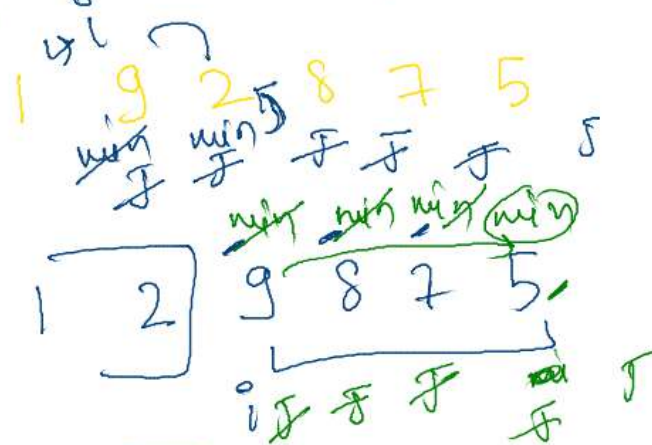 i
1 9 2 8 7 5
min min
J J J J J J
min min min min
1 2 9 8 7 5
i J J J J J